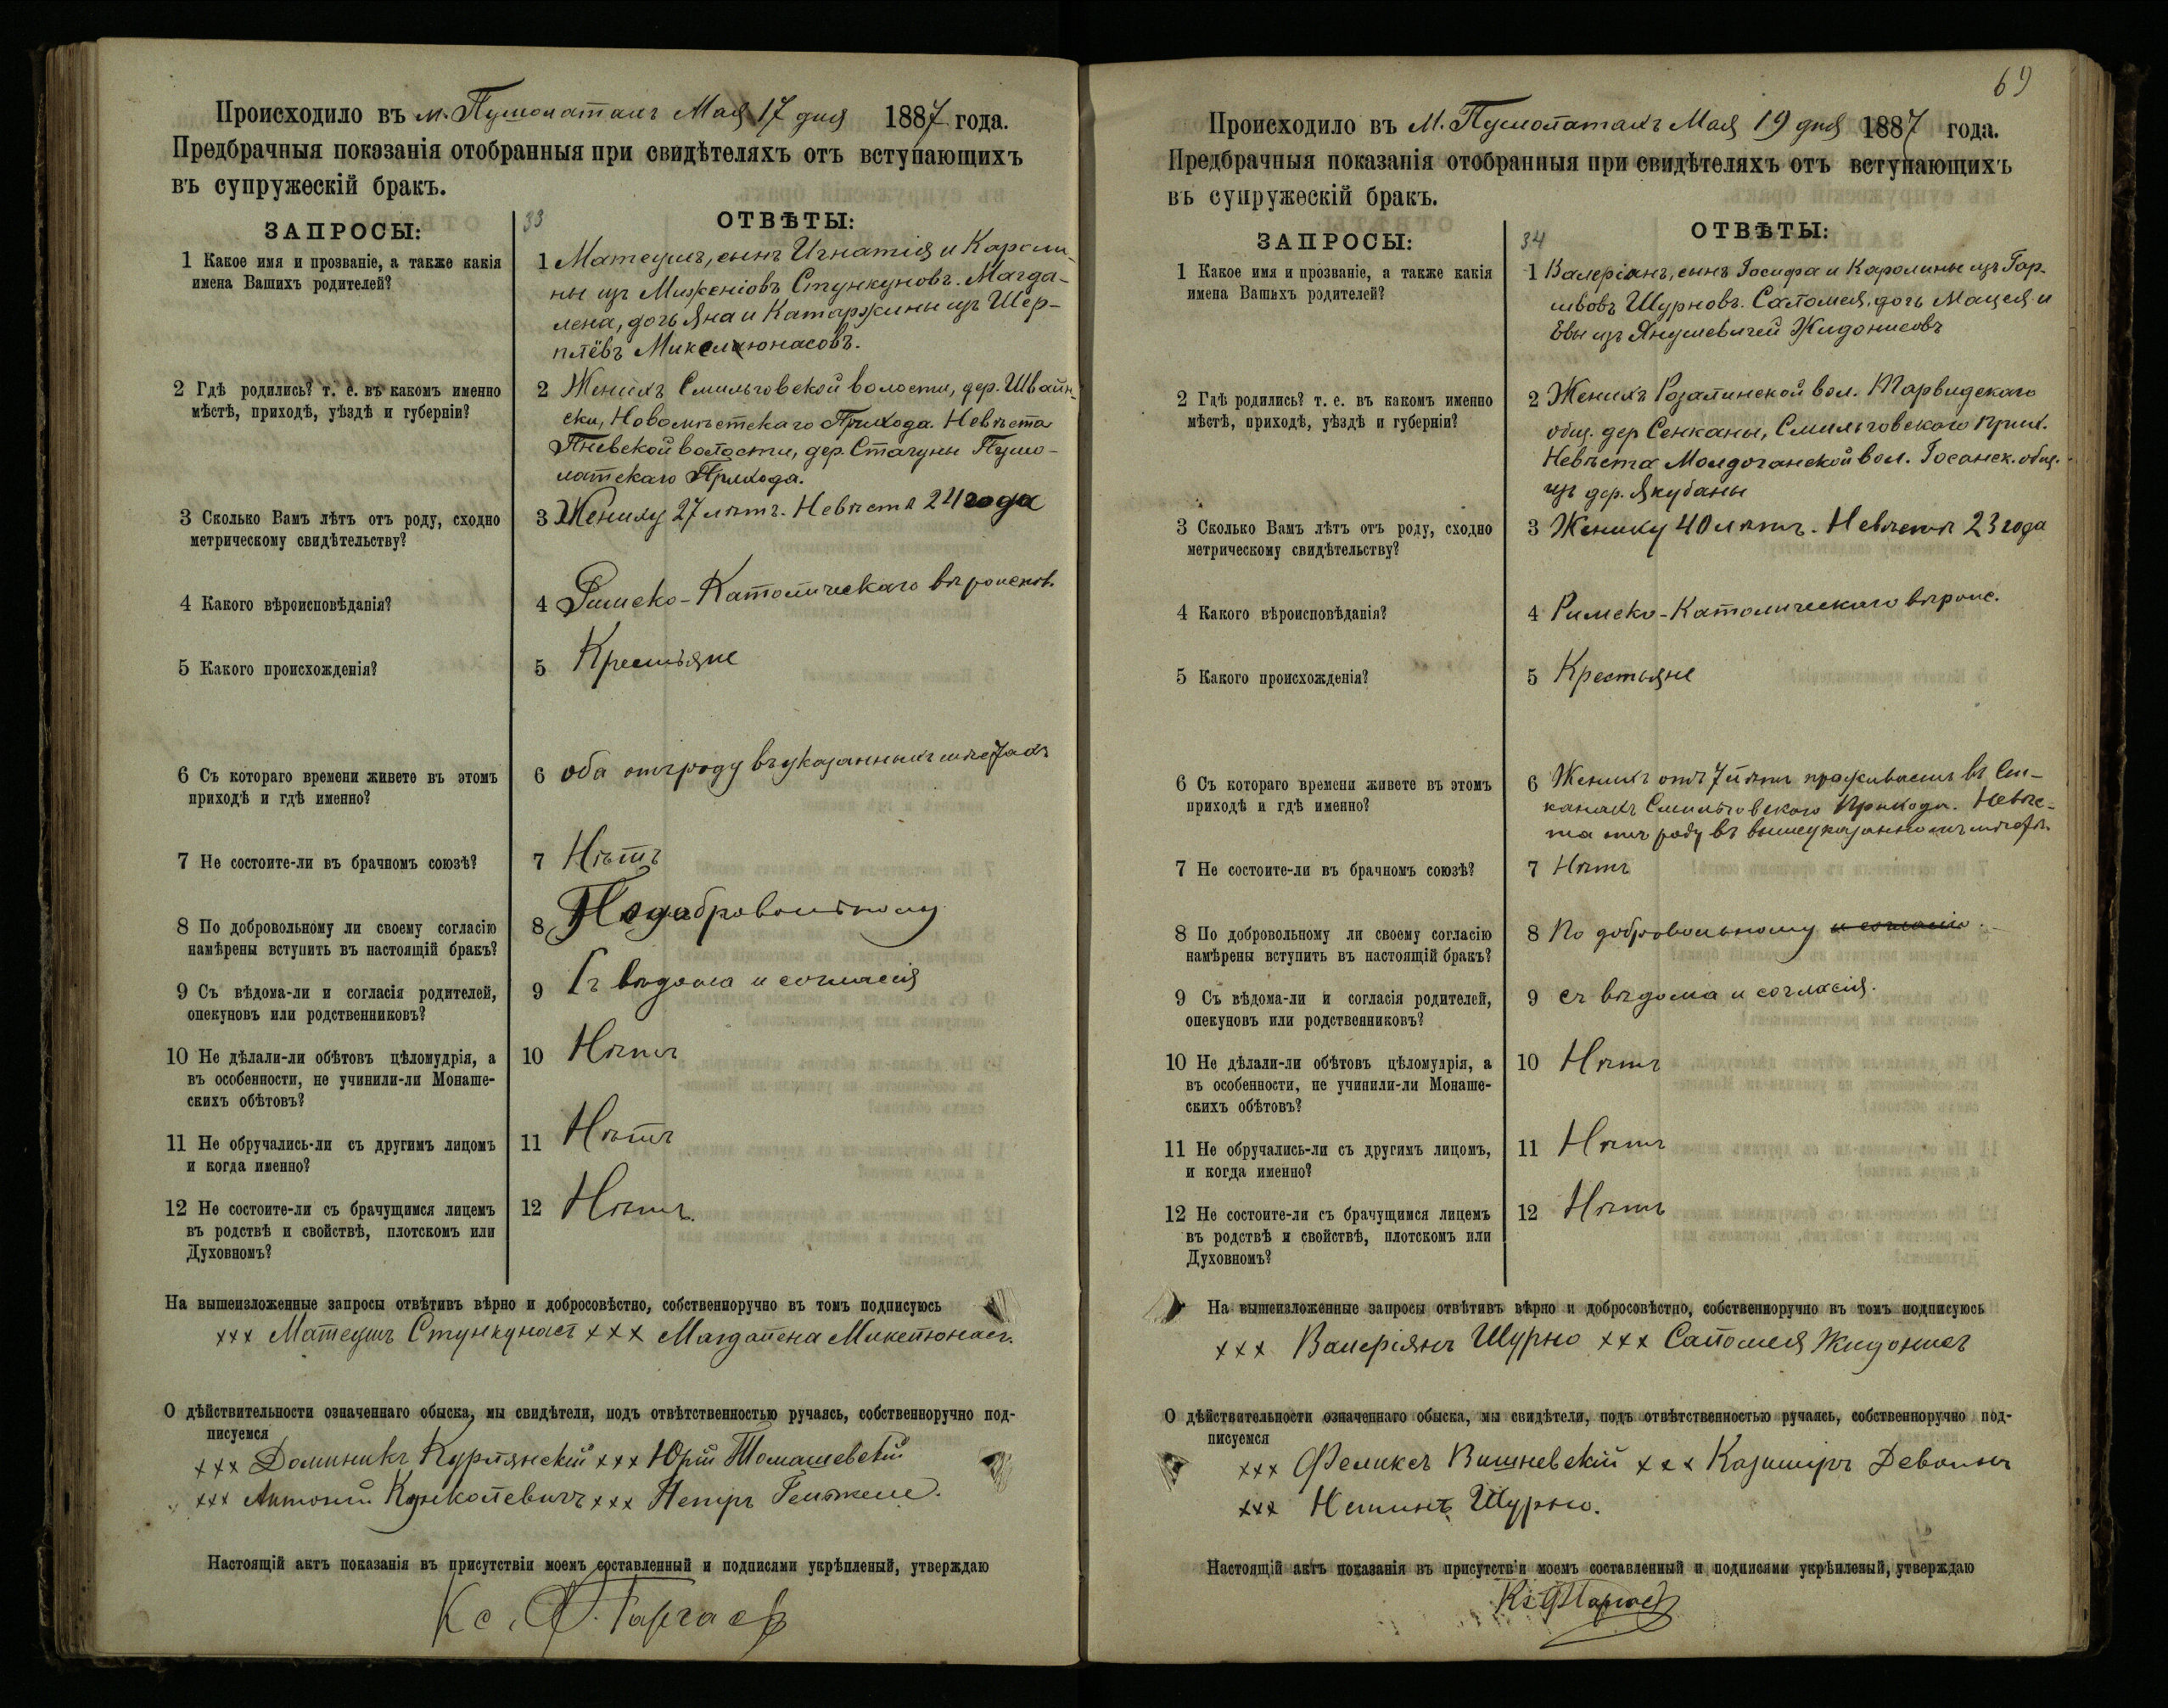 Происходило въ м. Пушолатахъ Мая 17 дня 1887 года.
Предбрачныя показанія отобранныя при свидѣтеляхъ отъ вступающихъ
въ супружескій бракъ.
ЗАПРОСЫ:
33
ОТВѢТЫ:
1 Какое имя и прозваніе, а также какія
имена Вашихъ родителей?
1 Матеушъ, сынъ Игнатія и Кароли-
ны изъ Стункуновъ. Магда-
лена, дочь Яна и Катаржины изъ Шер-
Микелюнасовъ.
2 Гдѣ родились? т. е. въ какомъ именно
мѣстѣ, приходѣ, уѣздѣ и губерніи?
2 Женихъ Смильговской волости, дер. Швайн-
ски, Новомѣстскаго Прихода. Невѣста
волости, дер. Стагуны Пушо-
латскаго Прихода.
3 Сколько Вамъ лѣтъ отъ роду, сходно
метрическому свидѣтельству?
3 Жениху 27 лѣтъ. Невѣстѣ 24 года
4 Какого вѣроисповѣданія?
4 Римско-Католическаго вѣроисков.
5 Какого происхожденія?
5 Крестьяне
6 Съ котораго времени живете въ этомъ
приходѣ и гдѣ именно?
6 оба отъ роду въ указанныхъ мѣстахъ
7 Не состоите-ли въ брачномъ союзѣ?
7 Нѣтъ
8 По добровольному ли своему согласію
намѣрены вступить въ настоящій бракъ?
8 По добровольному
9 Съ вѣдома-ли и согласія родителей,
опекуновъ или родственниковъ?
9 Съ вѣдома и согласія
10 Не дѣлали-ли обѣтовъ цѣломудрія, а
въ особенности, не учинили-ли Монаше-
скихъ обѣтовъ?
10 Нѣтъ
11 Не обручались-ли съ другимъ лицомъ
и когда именно?
11 Нѣтъ
12 Не состоите-ли съ брачущимся лицемъ
въ родствѣ и свойствѣ, плотскомъ или
Духовномъ?
12 Нѣтъ.
На вышеизложенные запросы отвѣтивъ вѣрно и добросовѣстно, собственноручно въ томъ подписуюсь
xxx Матеушъ Стункунасъ xxx Магдалена Микелюнасъ.
О дѣйствительности означеннаго обыска, мы свидѣтели, подъ отвѣтственностью ручаясь, собственноручно под-
писуемся
xxx Доминикъ Курлянскій xxx Юрій Томашевскій
xxx Антоній xxx Петръ
Настоящій актъ показанія въ присутствіи моемъ составленный и подписями укрѣпленый, утверждаю
Кс.
69
Происходило въ М. Пушолатахъ Мая 19 дня 1887 года.
Предбрачныя показанія отобранныя при свидѣтеляхъ отъ вступающихъ
въ супружескій бракъ.
ЗАПРОСЫ:
34
ОТВѢТЫ:
1 Какое имя и прозваніе, а также какія
имена Вашихъ родителей?
1 Валеріанъ, сынъ Іосифа и Каролины изъ Гар-
Шурновъ. Саломея, дочь Мацея и
Евы изъ Янушевичей Жидонисовъ
2 Гдѣ родились? т. е. въ какомъ именно
мѣстѣ, приходѣ, уѣздѣ и губерніи?
2 Женихъ Розалинской вол. Тарвидскаго
общ. дер Сенканы, Смильговскаго прих.
Невѣста вол. общ.
изъ дер. Якубаны
3 Сколько Вамъ лѣтъ отъ роду, сходно
метрическому свидѣтельству?
3 Жениху 40 лѣтъ. Невѣстѣ 23 года
4 Какого вѣроисповѣданія?
4 Римско-Католическаго вѣроис.
5 Какого происхожденія?
5 Крестьяне
6 Съ котораго времени живете въ этомъ
приходѣ и гдѣ именно?
6 Женихъ отъ 7и лѣтъ проживаетъ въ Сен-
канахъ Смильговскаго Прихода. Невѣс-
та отъ роду въ вышеуказанномъ мѣстѣ.
7 Не состоите-ли въ брачномъ союзѣ?
7 Нѣтъ
8 По добровольному ли своему согласію
намѣрены вступить въ настоящій бракъ?
8 По добровольному и согласію.
9 Съ вѣдома-ли и согласія родителей,
опекуновъ или родственниковъ?
9 съ вѣдома и согласія.
10 Не дѣлали-ли обѣтовъ цѣломудрія, а
въ особенности, не учинили-ли Монаше-
скихъ обѣтовъ?
10 Нѣтъ
11 Не обручались-ли съ другимъ лицомъ,
и когда именно?
11 Нѣтъ
12 Не состоите-ли съ брачущимся лицемъ
въ родствѣ и свойствѣ, плотскомъ или
Духовномъ?
12 Нѣтъ
На вышеизложенные запросы отвѣтивъ вѣрно и добросовѣстно, собственноручно въ томъ подписуюсь
xxx Валеріянъ Шурно xxx Саломея Жидонисъ
О дѣйствительности означеннаго обыска, мы свидѣтели, подъ отвѣтственностью ручаясь, собственноручно под-
писуемся
xxx Феликсъ Вишневскій xxx Казиміръ
xxx Шурно.
Настоящій актъ показанія въ присутствіи моемъ составленный и подписями укрѣпленый, утверждаю